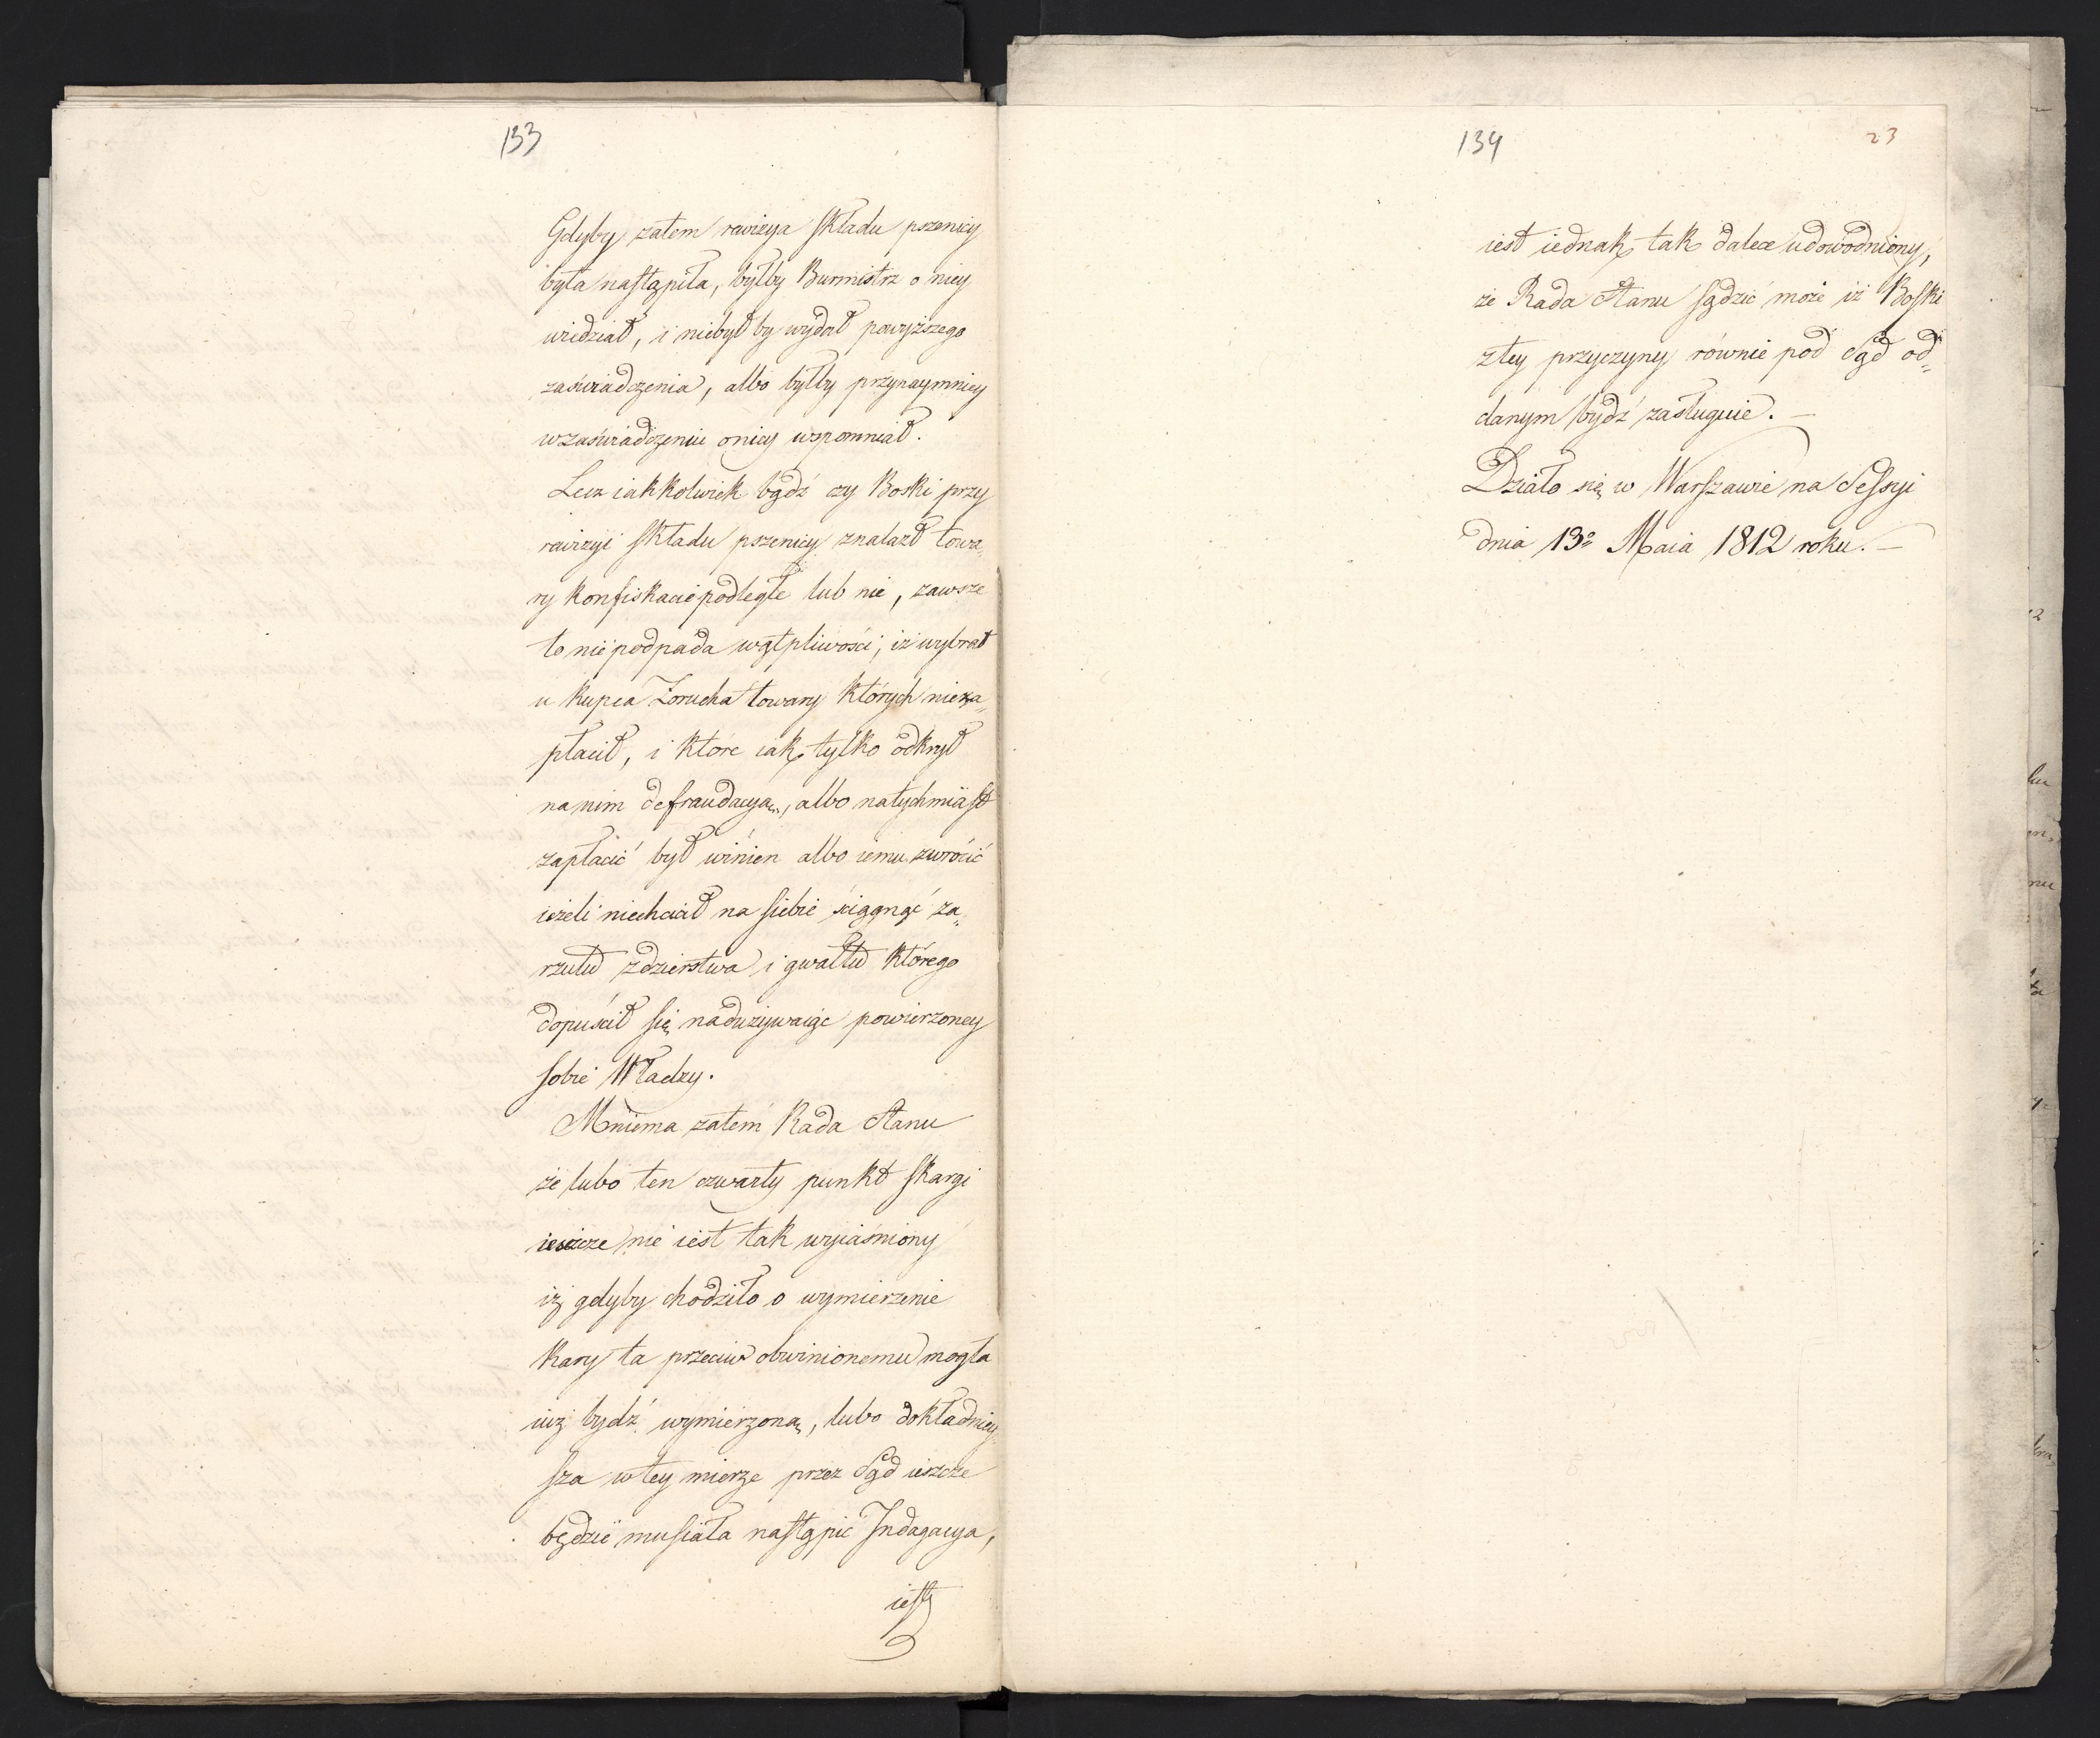 133
Gdyby zatem rewizya składu pszenicy
była nastąpiła, byłby Burmistrz o niey
wiedział, i niebył by wydał powyższego
zaświadczenia, albo byłby przynaymniey
w zaświadczeniu o niey wspomniał.
Lecz iakkolwiek bądź czy Boski przy
rewizyi składu pszenicy znalazł towa„
ry konfiskacie podległe lub nie, zawsze
to nie podpada wątpliwości, iż wybrał
u kupca Zorucha towary których nieza„
płacił, i które iak tylko odkrył
na nim defraudacyą, albo natychmiast
zapłacić był winien albo iemu zwrócić
ieżeli niechciał na siebie ściągnąć za„
rzutu zdzierstwa i gwałtu którego
dopuścił się nadużywaiąc powierzoney
sobie Władzy.
Mniema zatem Rada Stanu
że lubo ten czwarty punkt skargi
ieszcze nie iest tak wyiaśniony
iż gdyby chodziło o wymierzenie
kary ta przeciw obwinionemu mogła
iuż bydź wymierzoną, lubo dokładniey„
sza w tey mierze przez Sąd ieszcze
będzie musiała nastąpić Indagacya,
iest
134
23
iest iednak tak dalece udowodniony,
że Rada Stanu sądzić może iż Boski
z tey przyczyny równie pod Sąd od„
danym bydź zasługuie. —
Działo się w Warszawie na Sessyi
dnia 13º Maia 1812 roku. —